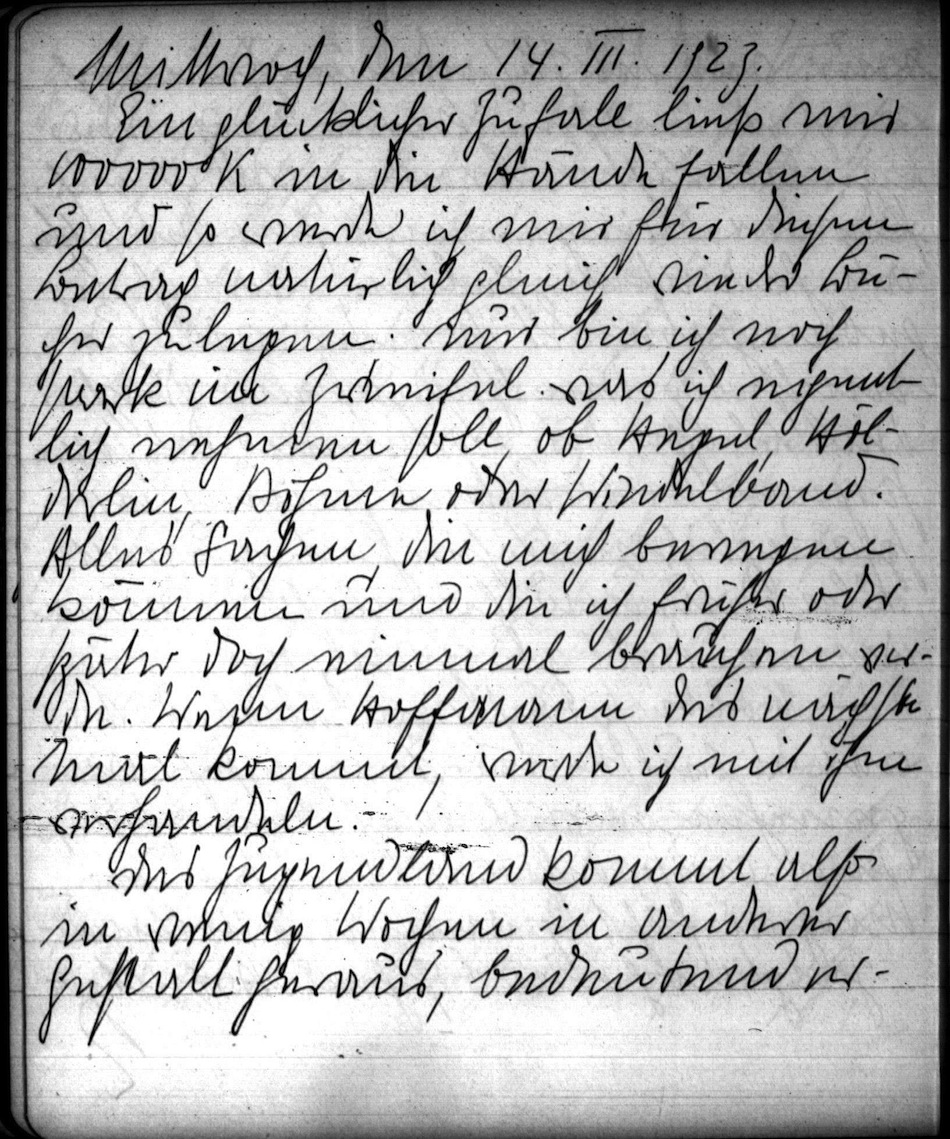 Mittwoch, den 14. III. 1923.
Ein glücklicher Zufall ließ mir
100000 K in die Hände fallen
und so werde ich mir für diesen
Betrag natürlich gleich wieder Bü-
cher zulegen. Nur bin ich noch
stark im Zweifel was ich eigent-
lich nehmen soll, ob Hegel, Höl-
derlin, Böhme oder Windelband.
Alles Sachen, die mich bewegen
können und die ich früher oder
später doch einmal brauchen wer-
de. Wenn Hoffmann das nächste
Mal kommt, werde ich mit ihm
verhandeln.-
Das Jugendland kommt also
in wenig Wochen in anderer
Gestalt heraus, bedeutend er-